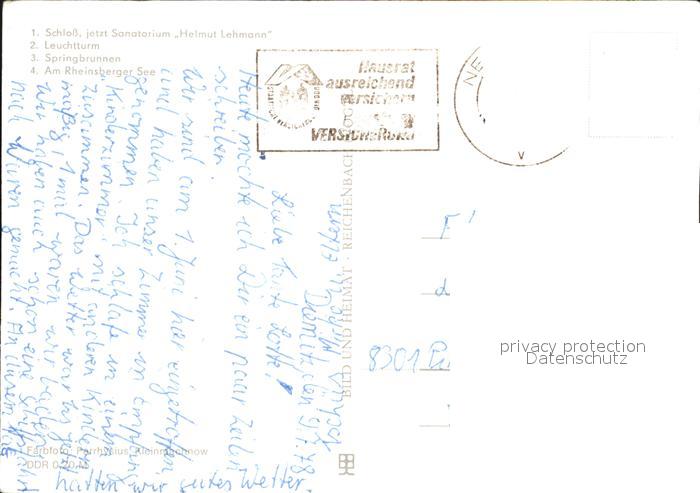 1. Schloß, jetzt Sanatorium „Helmut Lehmann"
2. Leuchtturm
3. Springbrunnen
4. Am Rheinsberger See
Hausrat
ausreichend
versichern
VERSICHERUNG
NE
V
BILD UND HEIMAT · REICHENBACH
den 9.7.78
Liebe Tante Lotte!
Heute möchte ich Dir ein paar Zeilen
schreiben.
Wir sind am 1. Juni hier eingetroffen
und haben unser Zimmer in Empfang
genommen. Ich schlafe in einem
"Kinderzimmer" mit anderen Kindern
zusammen. Das Wetter war bis jetzt
mäßig. 1 mal waren wir baden.
Wir haben auch schon eine
nach Waren gemacht. An diesem
hatten wir gutes Wetter.
8301
Farbfoto: Parrhysius, Kleinmachnow
DDR 0,20 M
privacy protection
Datenschutz